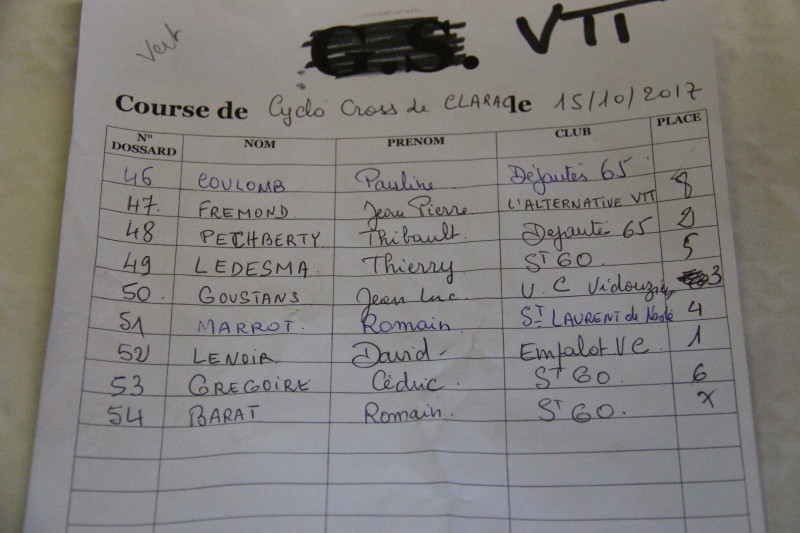 Vert
G.S. VTT
Course de Cyclo Cross de CLARAC le 15/10/2017
N° DOSSARD NOM PRENOM CLUB PLACE
46 COULOMB Pauline Déjantés 65
47. FREMOND Jean Pierre L'ALTERNATIVE VTT 8
48 PETCHBERTY Thibault. Dejanté 65 2
49 LEDESMA Thierry ST GO. 5
50. GOUSTANS Jean Luc U.C 3
51 MARROT. Romain ST LAURENT de Neste 4
52 LENOIR David Empalot VC 1
53 GREGOIRE Cédric. ST GO. 6
54 BARAT Romain. ST GO.